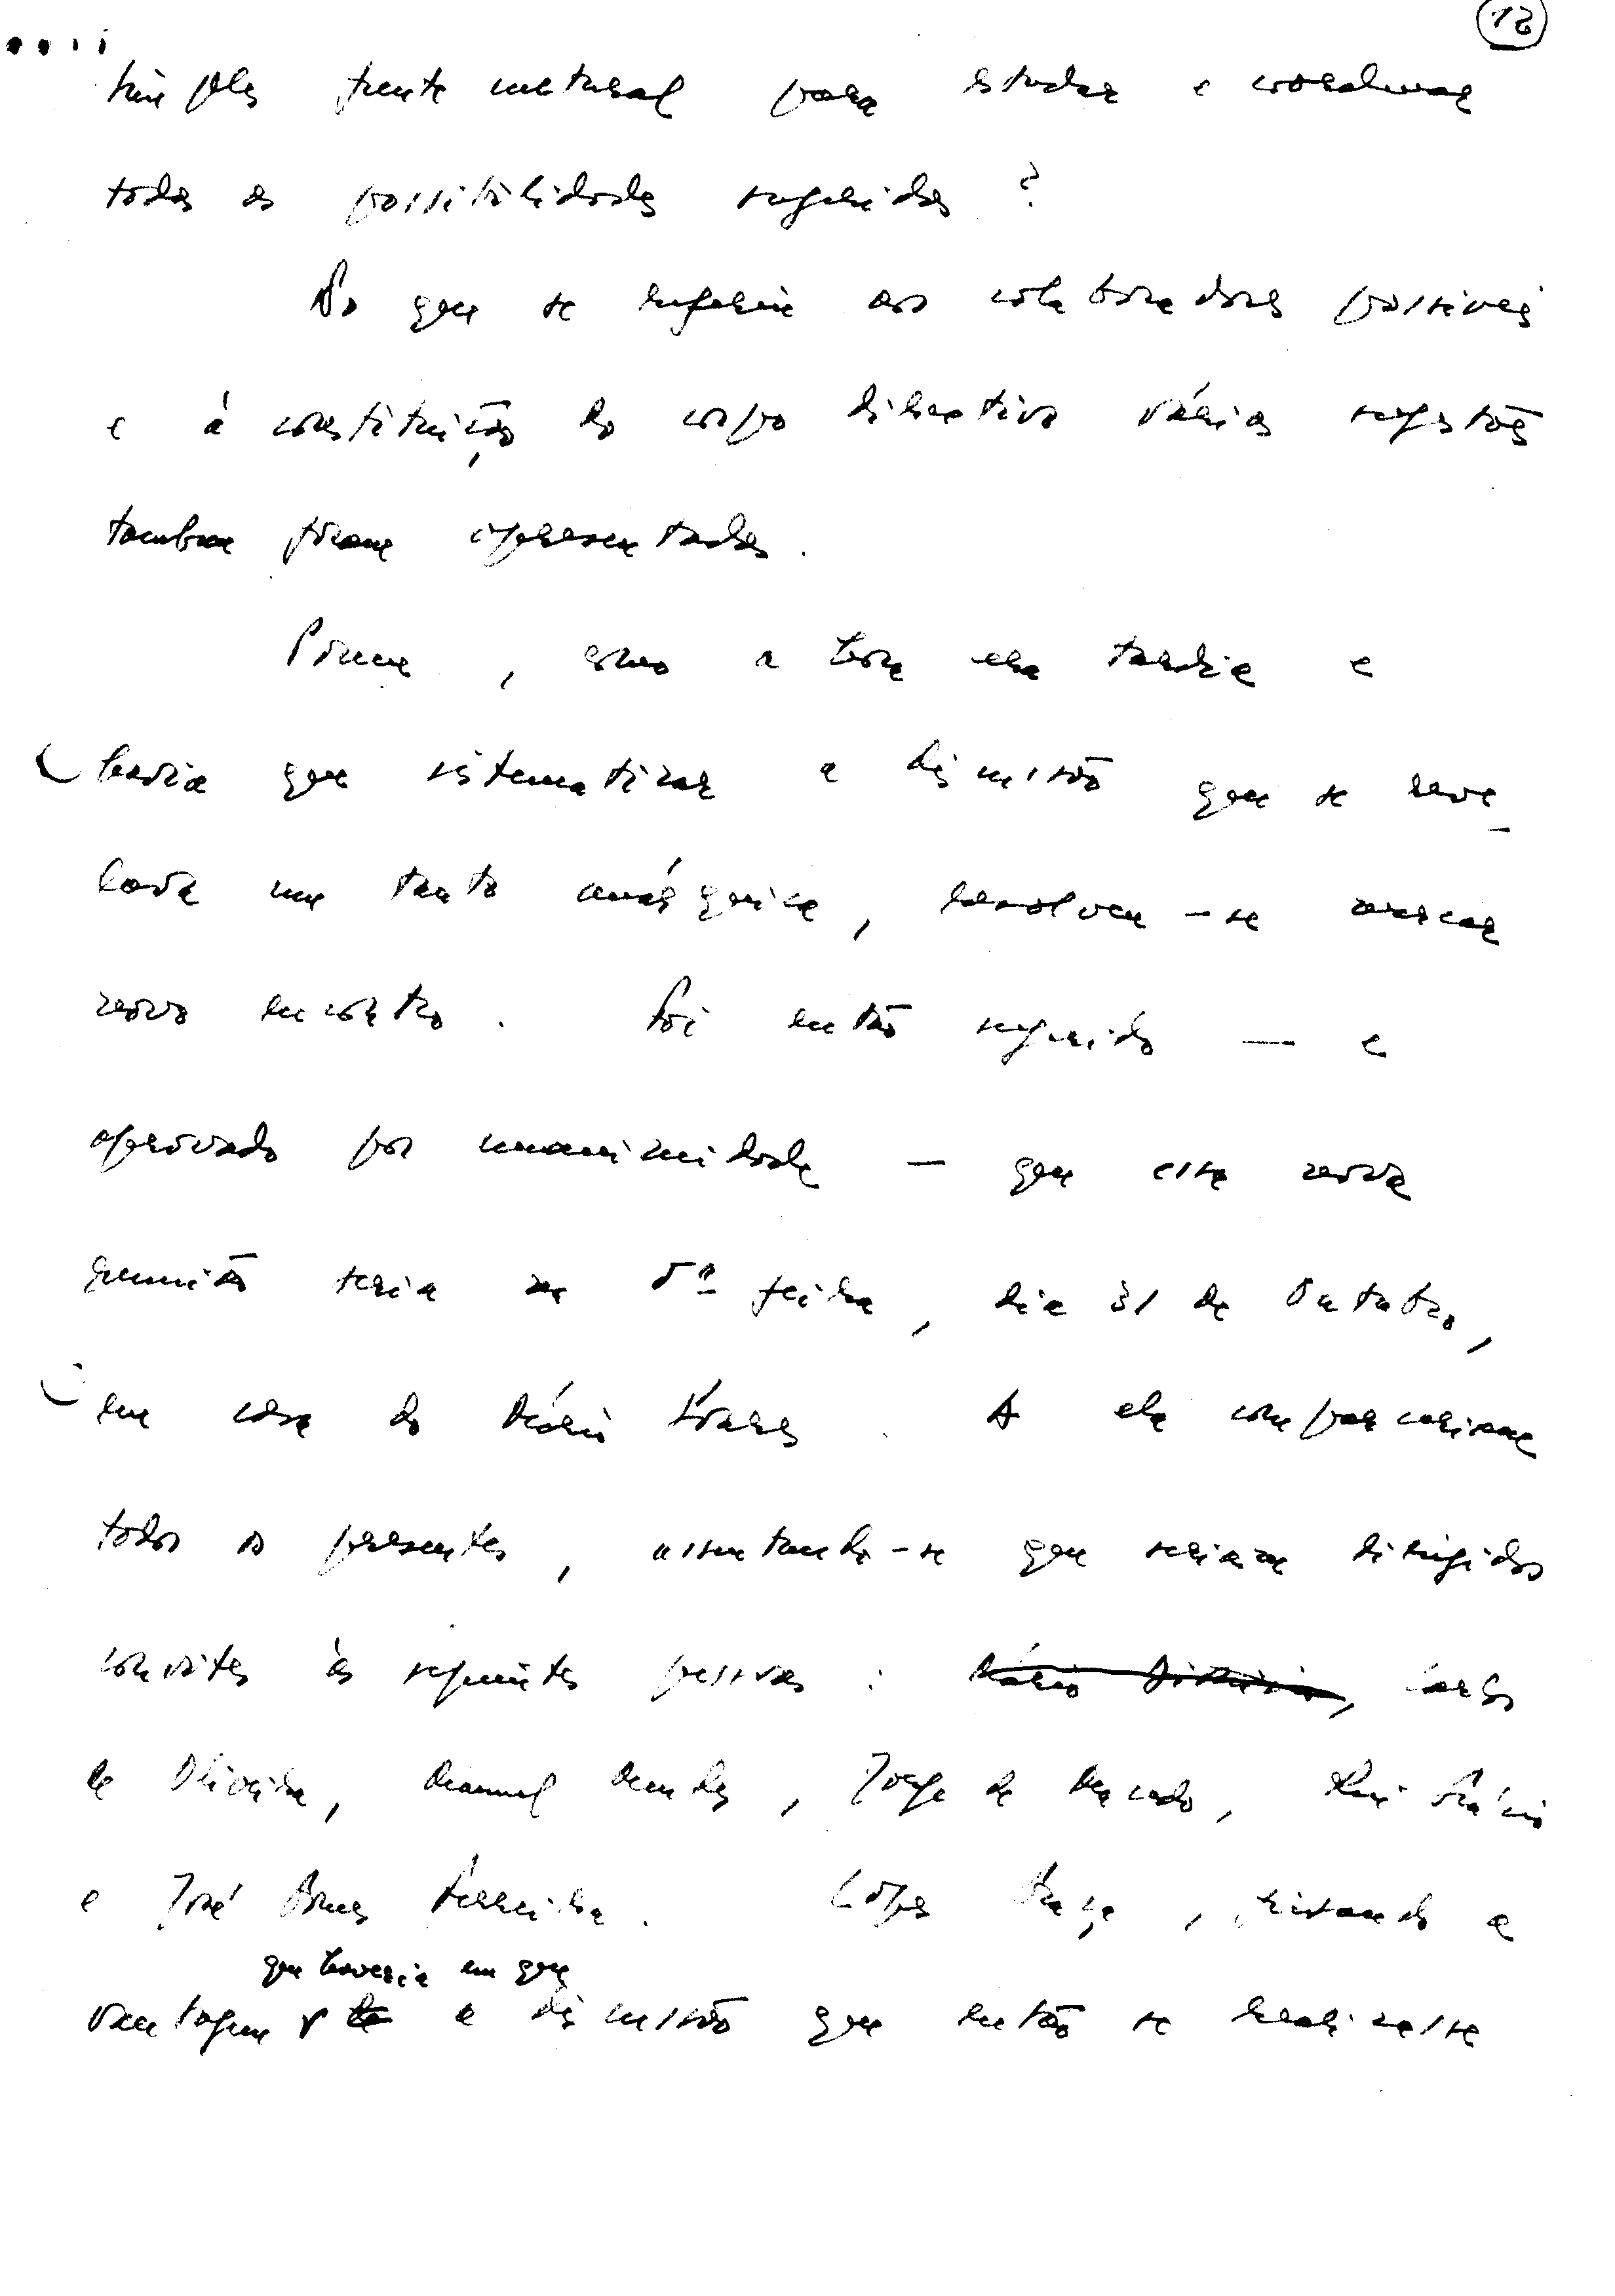 12
simples frente cultural para estudar e coordenar
todas as possibilidades sugeridas?
No que se referia aos colaboradores possíveis
e à constituição do corpo directivo várias sugestões
tambem foram apresentadas.
Porem, como a hora era tardia e
havia que sistematizar a discussão que se reve-
lava um tanto anárquica, resolveu-se marcar
novo encontro. Foi então sugerido — e
aprovado por unanimidade — que essa nova
reunião seria na 5ª feira, dia 31 de Outubro,
em casa do Mário Soares. A ela compareceriam
todos os presentes, assentando-se que seriam dirigidos
convites às seguintes pessoas: Mário Dionísio, Carlos
de Oliveira, Manuel Mendes, Jorge de Macedo, Rui Grácio
e José Gomes Ferreira. Lopes Graça, frisando a
que haveria em que
vantagem a discussão que então se realizasse